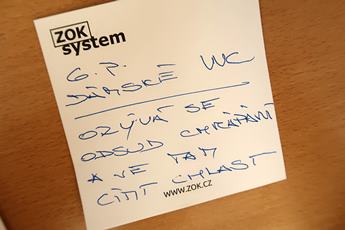 ZOK
system
6. P.
DÁMSKÉ WC
OZÝVÁ SE
ODSUD CHRÁPÁNÍ
A JE TAM
CÍTIT CHLAST
www.zok.cz